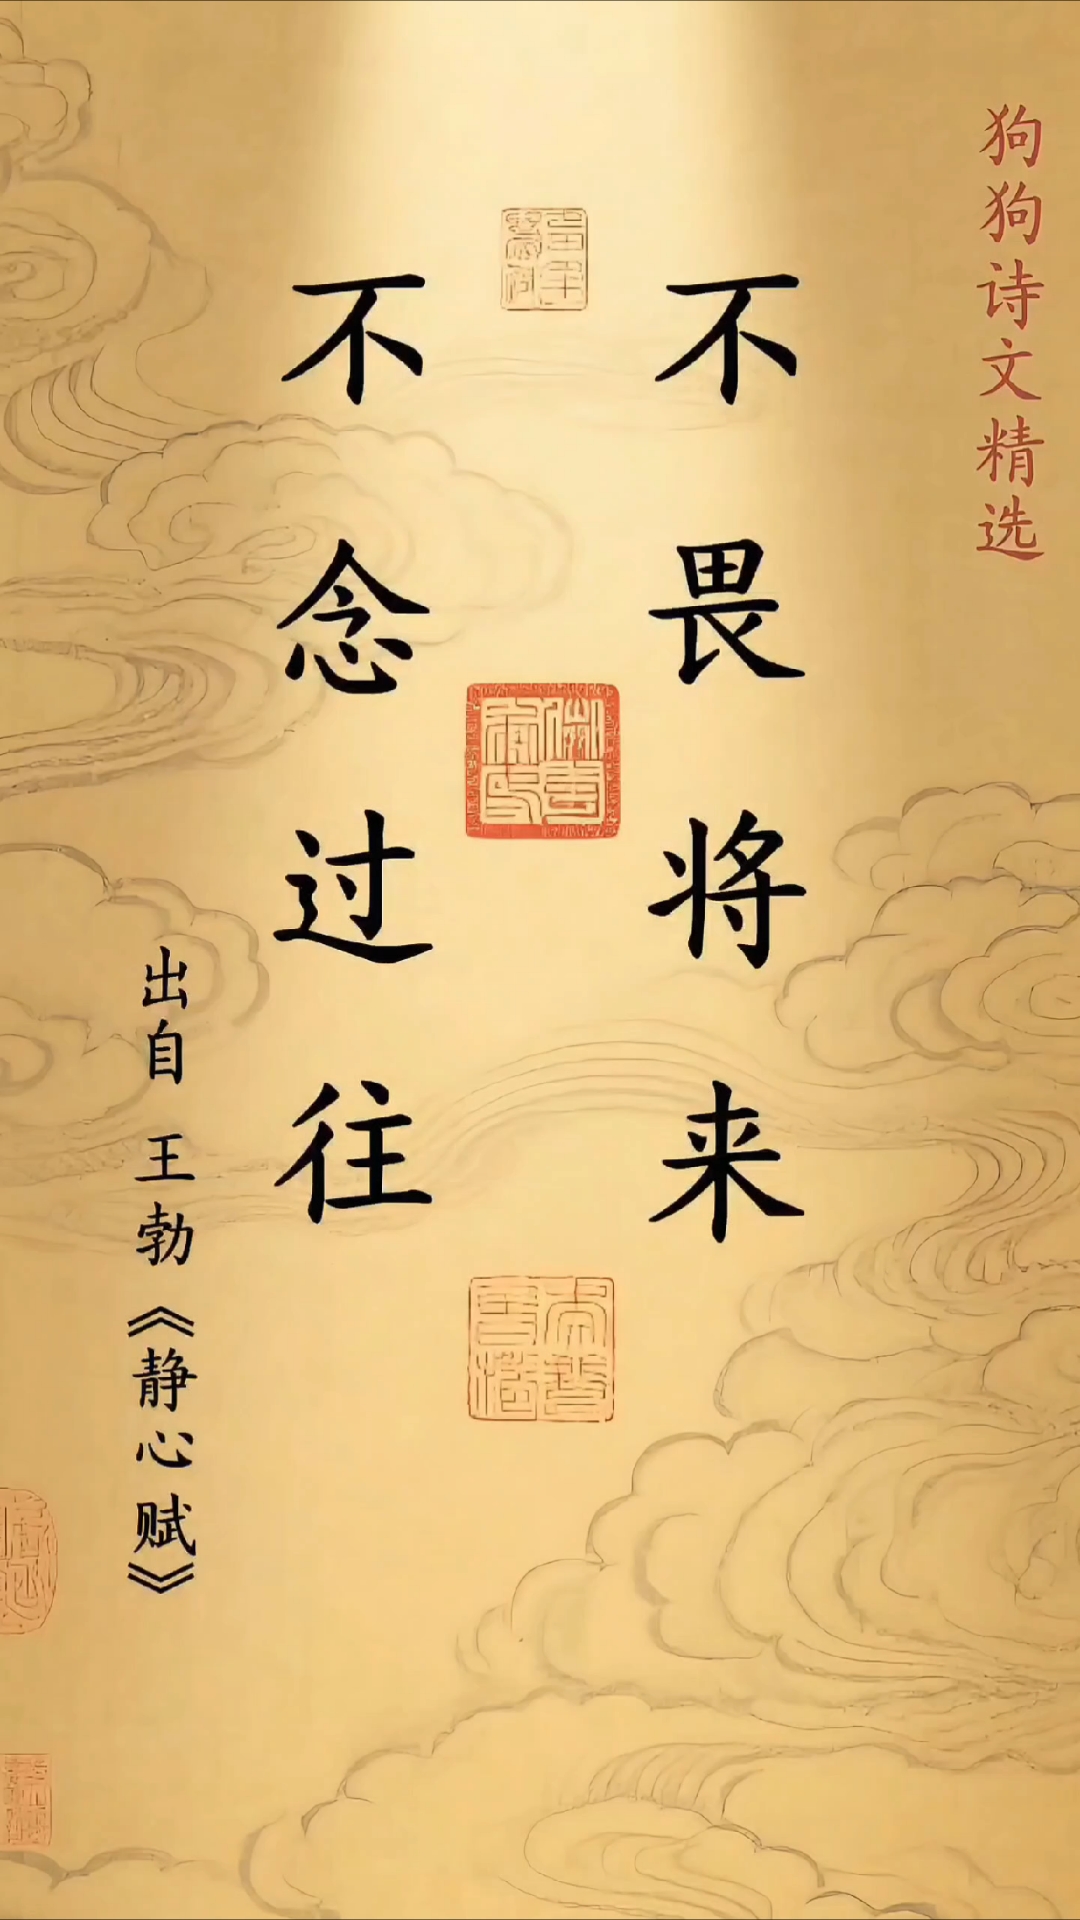 狗狗诗文精选
不畏将来
不念过往
出自 王勃《静心赋》